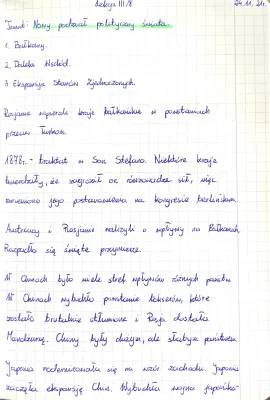 Lekcja III/8 24.11.21r.
Temat: Nowy podział polityczny świata.
1. Bałkany.
2. Daleki Wschód.
3. Ekspansja Stanów Zjednoczonych.
Rosjanie wspierali kraje bałkańskie w powstaniach
przeciw Turkom.
1878r. - traktat w San Stefano. Niektóre kraje
twierdziły, że zagroził on równowadze sił, więc
zmieniono jego postanowienia na kongresie berlińskim.
Austriacy i Rosjanie walczyli o wpływy na Bałkanach.
Rozpadło się święte przymierze.
W Chinach było wiele stref wpływów różnych państw.
W Chinach wybuchło powstanie bokserów, które
zostało brutalnie stłumione i Rosja dostała
Mandżurię. Chiny były dużym, ale słabym państwem.
Japonia zmodernizowała się na wzór zachodu. Japonia
zaczęła ekspansję Chin. Wybuchła wojna japońsko-